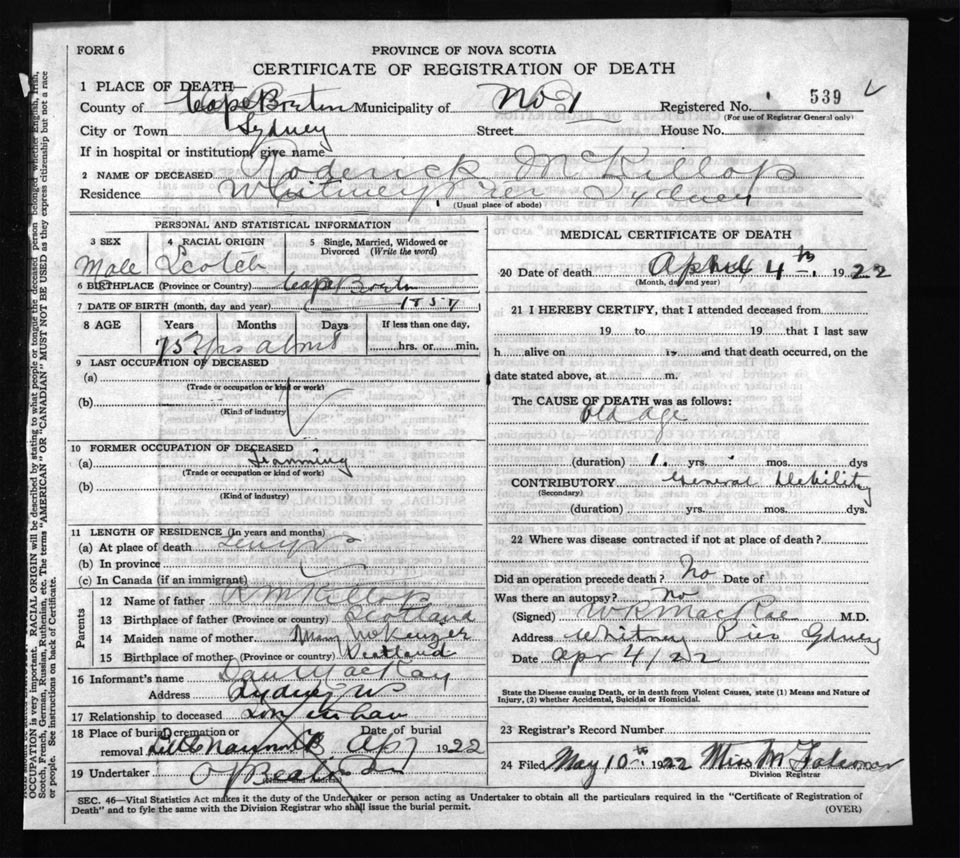 FORM 6
PROVINCE OF NOVA SCOTIA
CERTIFICATE OF REGISTRATION OF DEATH
1 PLACE OF DEATH—
County of Cape Breton Municipality of No 1 Registered No. 539
(For use of Registrar General only)
City or Town Sydney Street House No.
If in hospital or institution, give name
2 NAME OF DECEASED Roderick McKillop
Residence Whitney Pier Sydney
(Usual place of abode)
PERSONAL AND STATISTICAL INFORMATION
3 SEX 4 RACIAL ORIGIN 5 Single, Married, Widowed or Divorced (Write the word)
Male Scotch
6 BIRTHPLACE (Province or Country) Cape Breton
7 DATE OF BIRTH (month, day and year)
8 AGE Years Months Days If less than one day,
75 Yrs about hrs. or min.
9 LAST OCCUPATION OF DECEASED
(a)
(Trade or occupation or kind of work)
(b)
(Kind of industry)
10 FORMER OCCUPATION OF DECEASED
(a)
(Trade or occupation or kind of work)
(b)
(Kind of industry)
11 LENGTH OF RESIDENCE (In years and months)
(a) At place of death
(b) In province
(c) In Canada (if an immigrant)
Parents
12 Name of father R McKillop
13 Birthplace of father (Province or country) Scotland
14 Maiden name of mother Mary
15 Birthplace of mother (Province or country) Scotland
16 Informant's name Dan MacKay
Address Sydney
17 Relationship to deceased Son in law
18 Place of burial, cremation or Date of burial
removal Little Narrows CB Ap 7 1922
19 Undertaker
MEDICAL CERTIFICATE OF DEATH
20 Date of death April 4th 1922
(Month, day and year)
21 I HEREBY CERTIFY, that I attended deceased from
19 to 19 that I last saw
h alive on 19 and that death occurred, on the
date stated above, at m.
The CAUSE OF DEATH was as follows:
Old age
(duration) 1 yrs. mos. dys
CONTRIBUTORY General Debility
(Secondary)
(duration) yrs. mos. dys.
22 Where was disease contracted if not at place of death?
Did an operation precede death? No Date of
Was there an autopsy? No
(Signed) W K MacRae M.D.
Address Whitney Pier Sydney
Date Apr 4/22
State the Disease causing Death, or in death from Violent Causes, state (1) Means and Nature of
Injury, (2) whether Accidental, Suicidal or Homicidal.
23 Registrar's Record Number
24 Filed May 10th 1922 Miss M
Division Registrar
SEC. 46—Vital Statistics Act makes it the duty of the Undertaker or person acting as Undertaker to obtain all the particulars required in the "Certificate of Registration of
Death" and to fyle the same with the Division Registrar who shall issue the burial permit. (OVER)
OCCUPATION is very important. RACIAL ORIGIN will be described by stating to what people or tongue the deceased person belonged whether English, Irish,
Scotch, French, German, Russian, Ruthenian, etc. The terms "AMERICAN" OR "CANADIAN" MUST NOT BE USED as they express citizenship but not a race
or people. See instructions on back of Certificate.